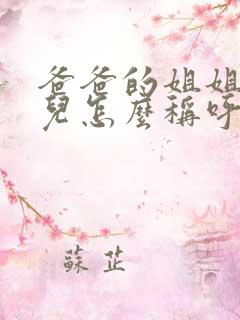 爸爸的姐姐
兒怎麼稱呼
蘇芷